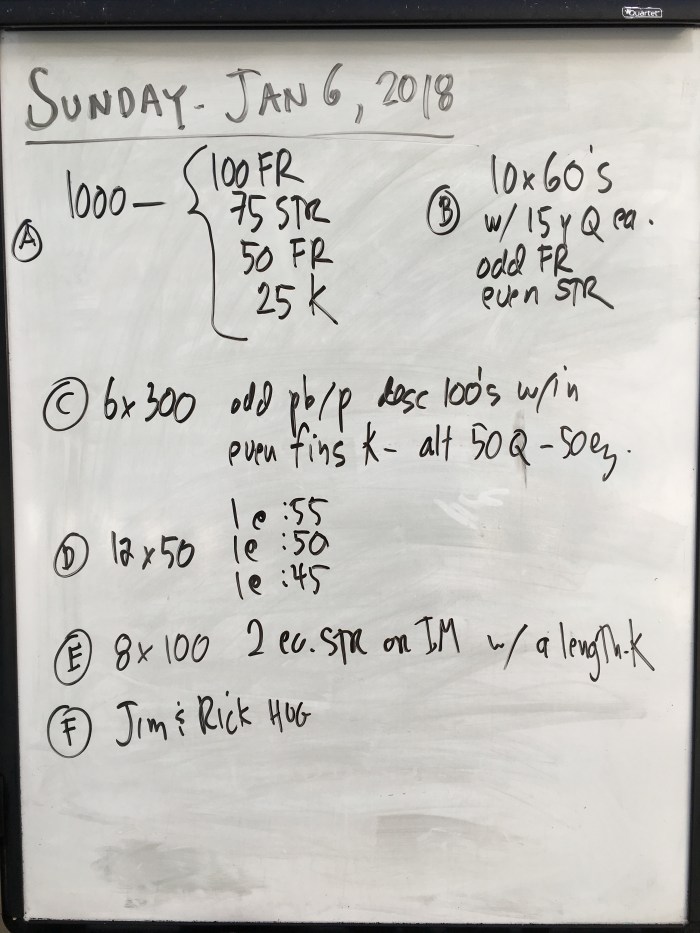 Quartet
SUNDAY - JAN 6, 2018
A 1000 -
100 FR
75 STR
50 FR
25 K
B 10x60's
w/ 15y Q ea.
odd FR
even STR
C 6x300 odd pb/p desc 100's w/in
even fins K- alt 50 Q - 50 ez.
D 12x50
1@ :55
1@ :50
1@ :45
E 8x100 2 ea. STR or IM w/ a length-K
F Jim & Rick HUG